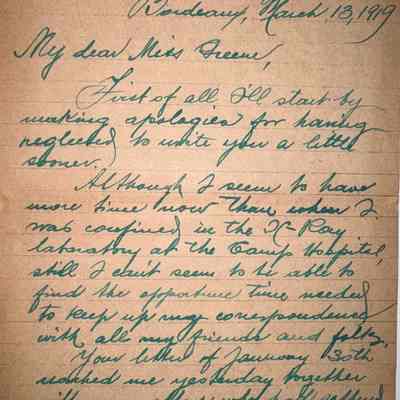 Bordeaux, March 13, 1919
My dear Miss Greene,
First of all I'll start by
making apologies for having
neglected to write you a little
sooner.
Although I seem to have
more time now than when I
was confined in the X-Ray
laboratory at the Camp Hospital,
still I can't seem to be able to
find the opportune time needed
to keep up my correspondence
with all my friends and folks.
Your letter of January 30th
reached me yesterday together